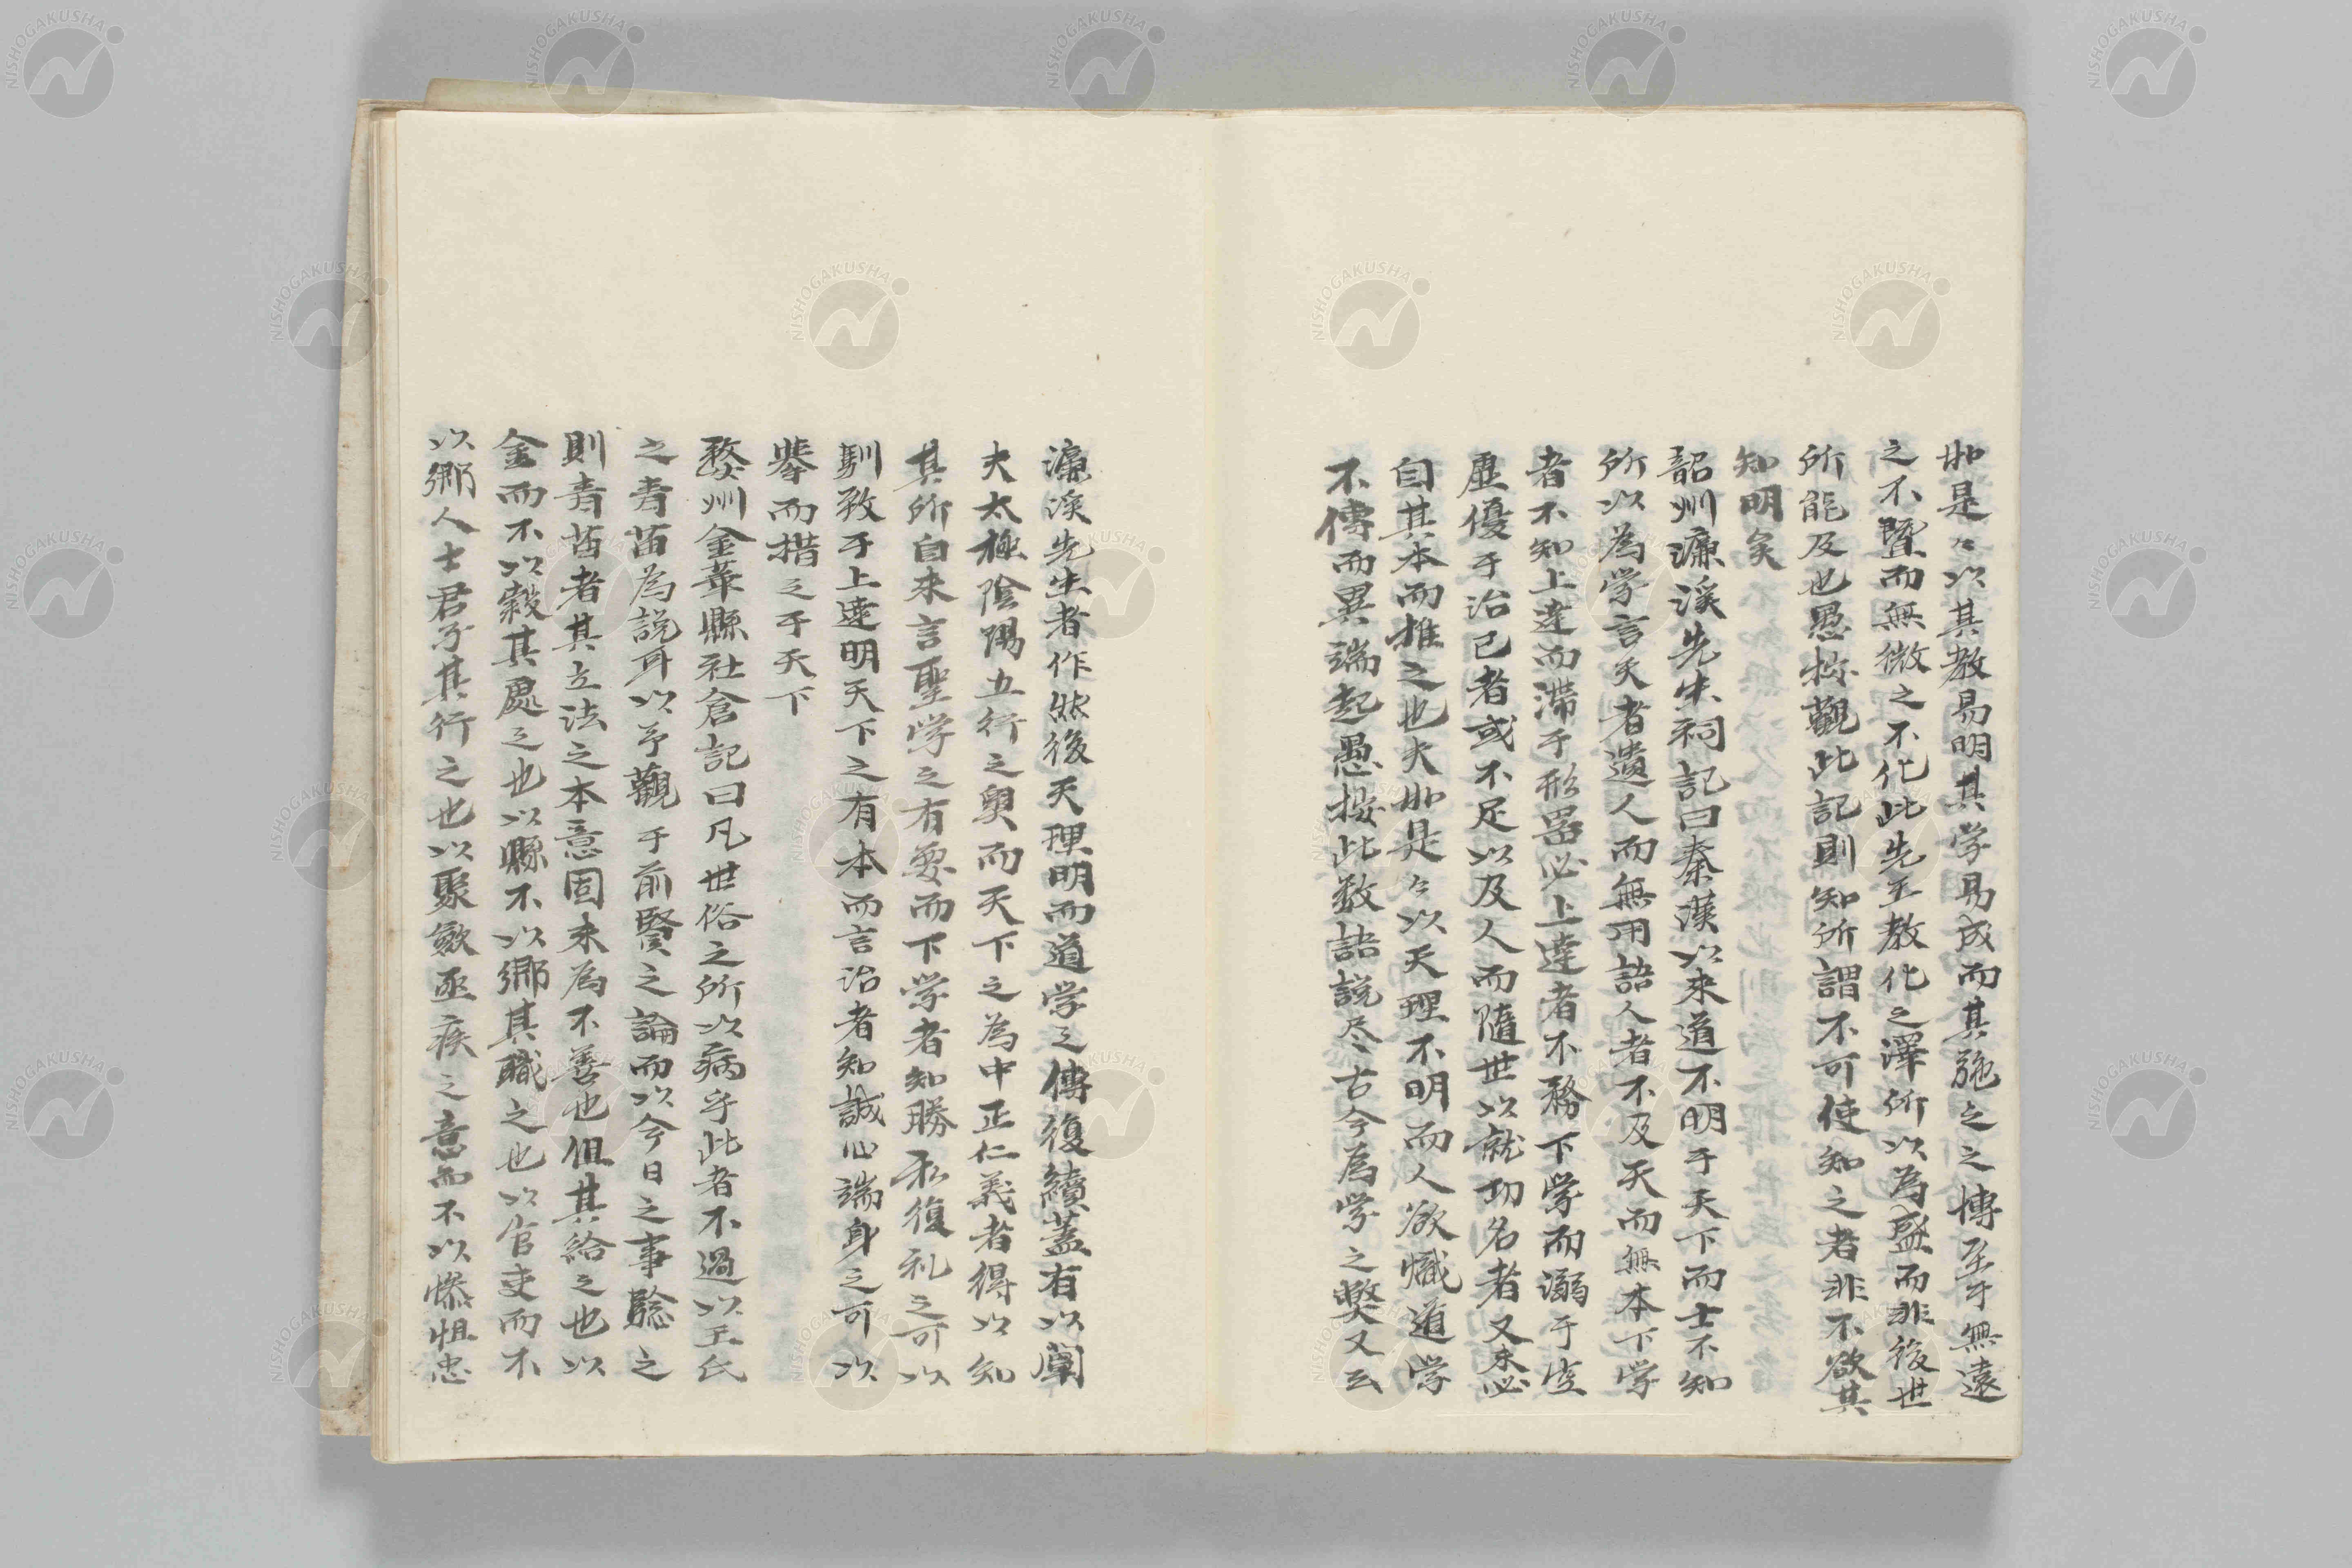 如是々以其教易明其学易成而其施之之博至于無遠
之不曁而無微之不化此先王教化之澤所以為盛而非後世
所能及也愚按觀此記則知所謂不可使知之者非不欲其
知明矣
韶州濂渓先生祠記曰秦漢以来道不明于天下而士不知
所以為学言天者遺人而無用語人者不及天而無本下学
者不知上達而滞于形器必上達者不務下学而溺于空
虚優于治己者或不足以及人而随世以就功名者又未必
自其本而推之也夫如是々以天理不明而人欲熾道学
不傳而異端起愚按此数語説尽古今為学之獘又云
濂溪先生者作然後天理明而道学之傳復續蓋有以闡
夫太極陰陽五行之奥而天下之為中正仁義者得以知
其所自来言聖学之有要而下学者知勝私復礼之可以
馴致于上達明天下之有本而言治者知誠心端身之可以
挙而措之于天下
婺州金華縣社倉記曰凡世俗之所以病乎此者不過以王氏
之青苗為説耳以予觀于前賢之論而以今日之事驗之
則青苗者其立法之本意固未為不善也但其給之也以
金而不以穀其處之也以縣不以鄉其職之也以官吏而不
以鄉人士君子其行之也以聚斂亟疾之意而不以惨怛忠